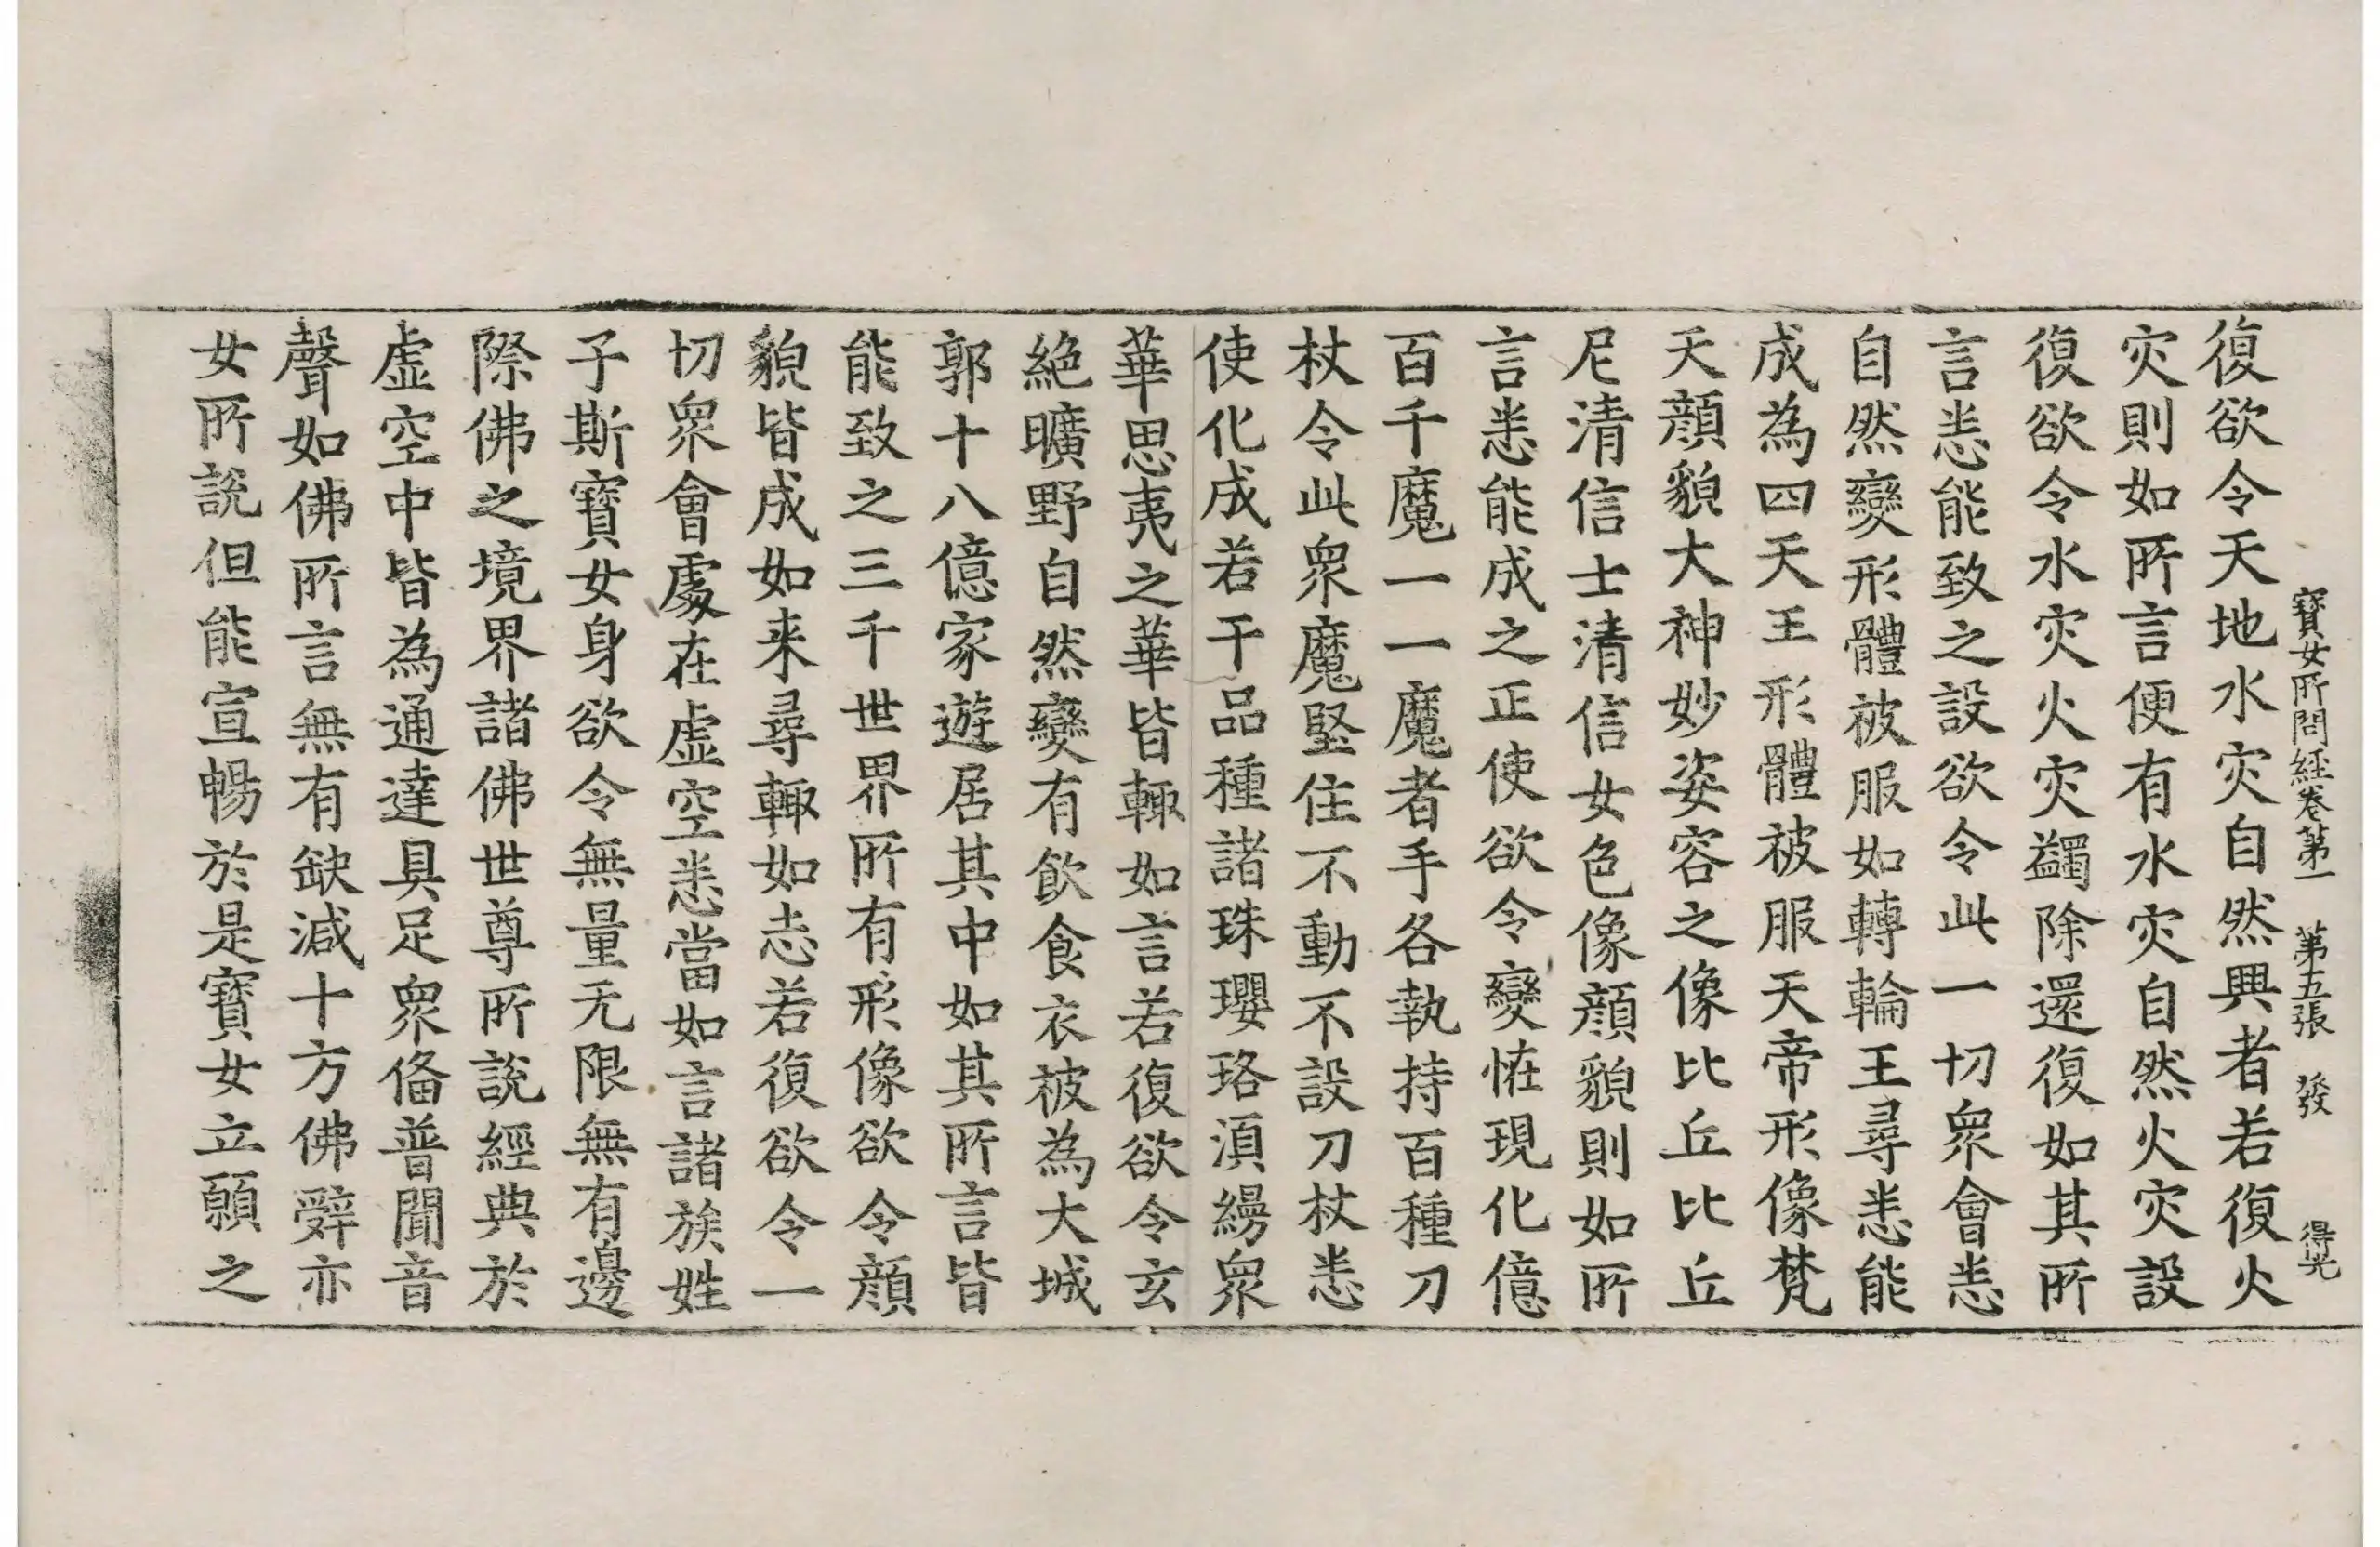 寶女所問經卷第一　第五張　發　得光
復欲令天地水灾自然興者若復火
灾則如所言便有水灾自然火灾設
復欲令水灾火灾蠲除還復如其所
言悉能致之設欲令此一切衆會悉
自然變形體被服如轉輪王尋悉能
成為四天王形體被服天帝形像梵
天顔貌大神妙姿容之像比丘比丘
尼清信士清信女色像顔貌則如所
言悉能成之正使欲令變恠現化億
百千魔一一魔者手各執持百種刀
杖令此衆魔堅住不動不設刀杖悉
使化成若干品種諸珠瓔珞滇繦衆
華思夷之華皆輙如言若復欲令玄
絶曠野自然變有飲食衣被為大城
郭十八億家遊居其中如其所言皆
能致之三千世界所有形像欲令顔
貌皆成如来尋輙如志若復欲令一
切衆會處在虚空悉當如言諸族姓
子斯寶女身欲令無量无限無有邊
際佛之境界諸佛世尊所說經典於
虚空中皆為通達具足衆俻普聞音
聲如佛所言無有缺減十方佛辤亦
女所説但能宣暢於是寶女立願之